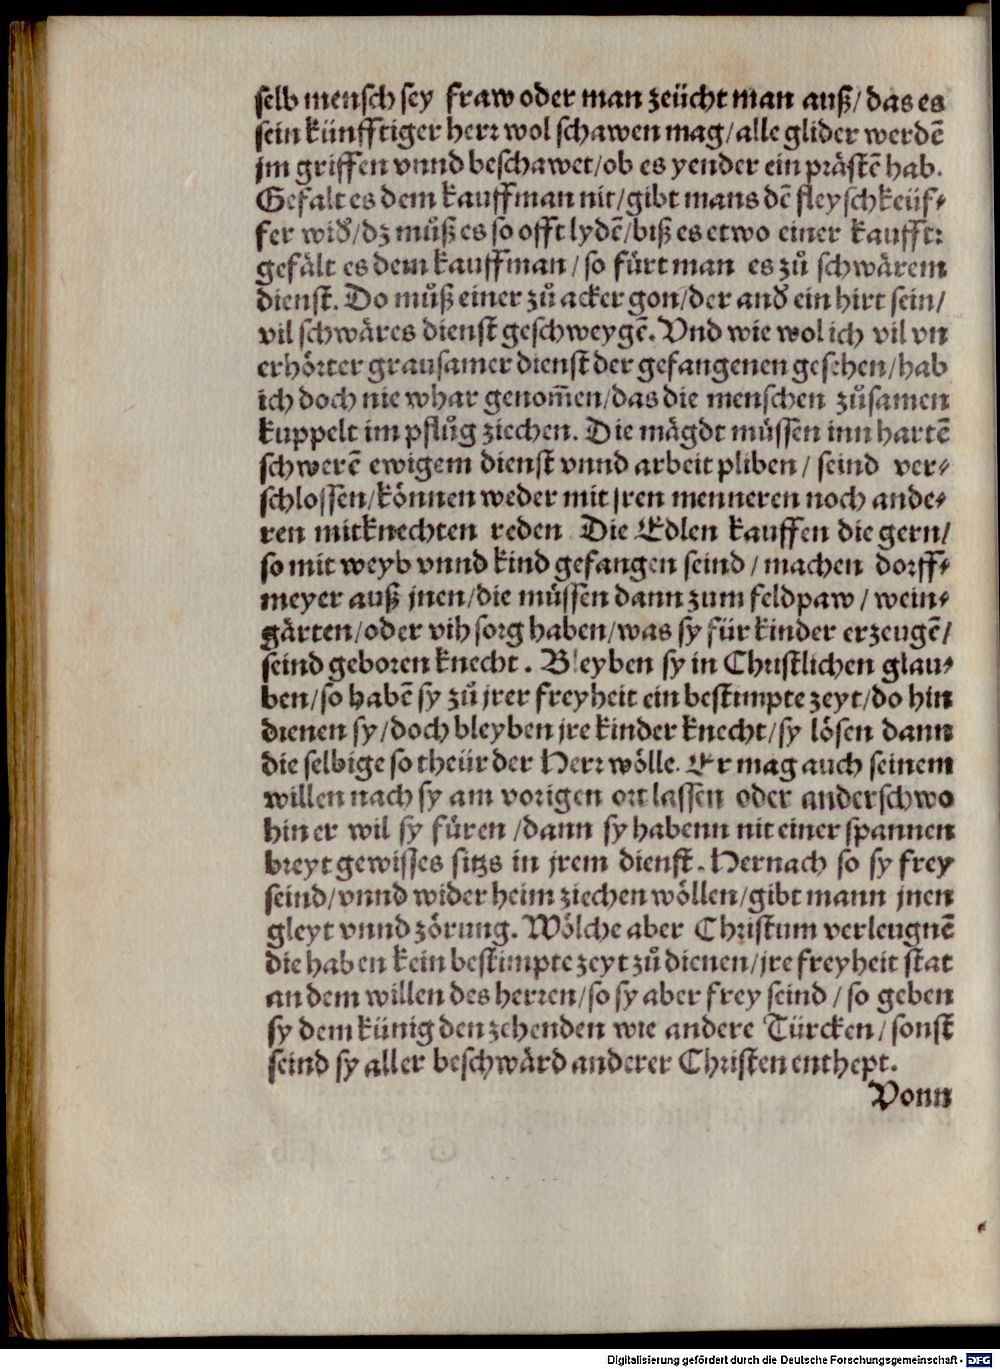 selb mensch sey fraw oder man zeücht man auß/ das es
sein künfftiger herr wol schawen mag/ alle glider werdē
jm griffen vnnd beschawet/ ob es yender ein prästē hab.
Gefalt es dem kauffman nit/ gibt mans dē fleyschkeüf⸗
fer wid̕/ dz můß es so offt lydē/ biß es etwo einer kaufft:
gefält es dem kauffman/ so fürt man es zů schwärem
dienst. Do můß einer zů acker gon/ der and̕ ein hirt sein/
vil schwäres dienst geschweygē. Vnd wie wol ich vil vn
erhörter grausamer dienst der gefangenen gesehen/ hab
ich doch nie whar genom̄en/ das die menschen zůsamen
kuppelt im pflůg ziechen. Die mägdt müssen inn hartē
schwerē ewigem dienst vnnd arbeit pliben/ seind ver⸗
schlossen/ können weder mit jren menneren noch ande⸗
ren mitknechten reden Die Edlen kauffen die gern/
so mit weyb vnnd kind gefangen seind/ machen dorff⸗
meyer auß jnen/ die müssen dann zum feldpaw/ wein⸗
gärten/ oder vih sorg haben/ was sy für kinder erzeugē/
seind geboren knecht. Bleyben sy in Christlichen glau⸗
ben/ so habē sy zů jrer freyheit ein bestimpte zeyt/ do hin
dienen sy/ doch bleyben jre kinder knecht/ sy lösen dann
die selbige so theür der Herr wölle. Er mag auch seinem
willen nach sy am vorigen ort lassen oder anderschwo
hin er wil sy füren/ dann sy habenn nit einer spannen
breyt gewisses sitzs in jrem dienst. Hernach so sy frey
seind/ vnnd wider heim ziechen wöllen/ gibt mann jnen
gleyt vnnd zörung. Wölche aber Christum verleugnē
die haben kein bestimpte zeyt zů dienen/ jre freyheit stat
an dem willen des herren/ so sy aber frey seind/ so geben
sy dem künig den zehenden wie andere Türcken/ sonst
seind sy aller beschwärd anderer Christen enthept.
Vonn
Digitalisierung gefördert durch die Deutsche Forschungsgemeinschaft - DFG